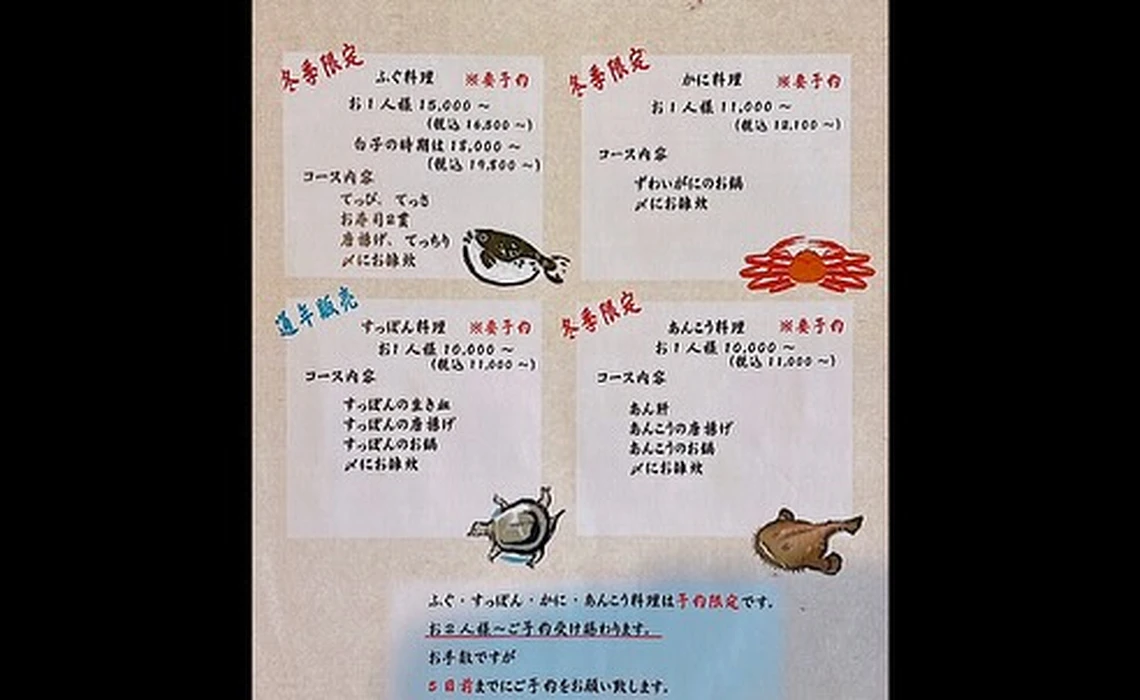 冬季限定
ふぐ料理 ※要予約
お1人様 15,000 ～
(税込 16,500 ～)
白子の時期は 18,000 ～
(税込 19,800 ～)
コース内容
てっぴ、てっさ
お寿司2貫
唐揚げ、てっちり
〆にお雑炊
冬季限定
かに料理 ※要予約
お1人様 11,000 ～
(税込 12,100 ～)
コース内容
ずわいがにのお鍋
〆にお雑炊
通年販売
すっぽん料理 ※要予約
お1人様 10,000 ～
(税込 11,000 ～)
コース内容
すっぽんの生き血
すっぽんの唐揚げ
すっぽんのお鍋
〆にお雑炊
冬季限定
あんこう料理 ※要予約
お1人様 10,000 ～
(税込 11,000 ～)
コース内容
あん肝
あんこうの唐揚げ
あんこうのお鍋
〆にお雑炊
ふぐ・すっぽん・かに・あんこう料理は予約限定です。
お2人様～ご予約受け賜わります。
お手数ですが
5日前までにご予約をお願い致します。